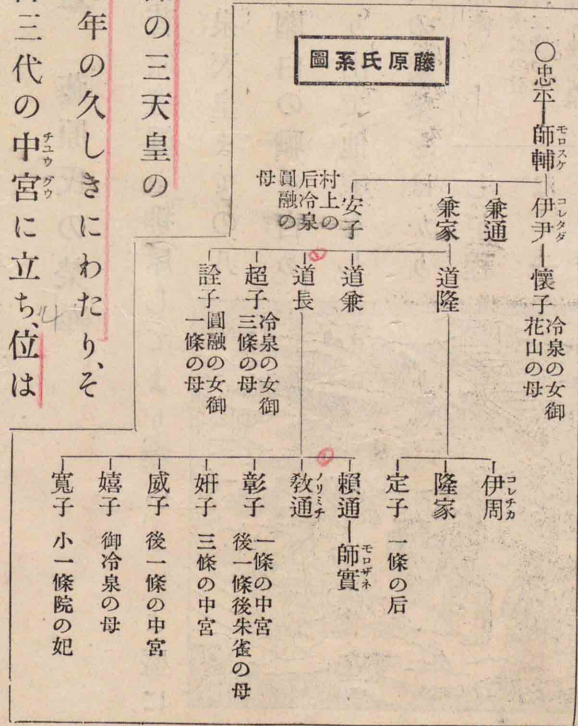 藤原氏系圖
〇忠平
師輔
モロスケ
伊尹
コレタダ
懷子
冷泉の女御
花山の母
兼通
兼家
安子
村上の
后冷泉
圓融の
母
道隆
道兼
道長
超子
冷泉の女御
三條の母
詮子
圓融の女御
一條の母
伊周
コレチカ
隆家
定子
一條の后
賴通
師實
モロザネ
敎通
ノリミチ
彰子
一條の中宮
後一條後朱雀の母
姸子
三條の中宮
威子
後一條の中宮
嬉子
御冷泉の母
寬子
小一條院の妃
の三天皇の
年の久しきにわたり、そ
三代の中宮に立ち、位は
チユウグウ